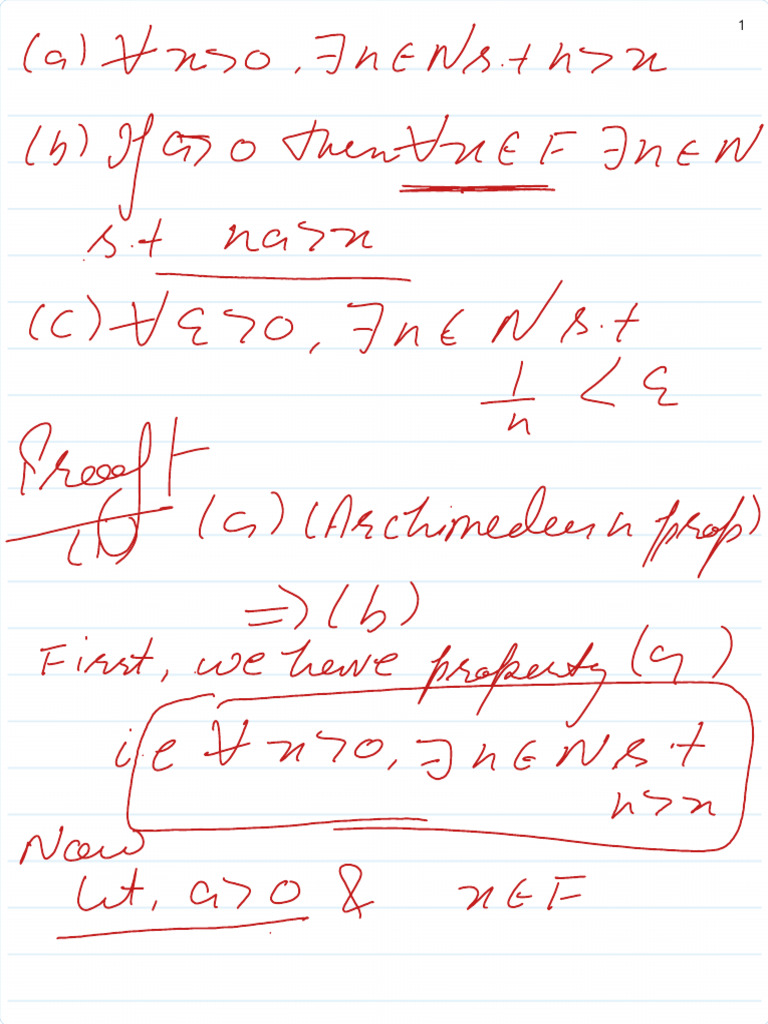 1
(a) ∀ x>0, ∃ n ∈ N s.t n>x
(b) If a>0 then ∀ x ∈ F ∃ n ∈ N
s.t na>x
(c) ∀ ε>0, ∃ n ∈ N s.t
1/n < ε
Proof:
(1) (a) (Archimedean prop)
=> (b)
First, we have property (a)
i.e ∀ x>0, ∃ n ∈ N s.t
n>x
Now
let, a>0 & x ∈ F